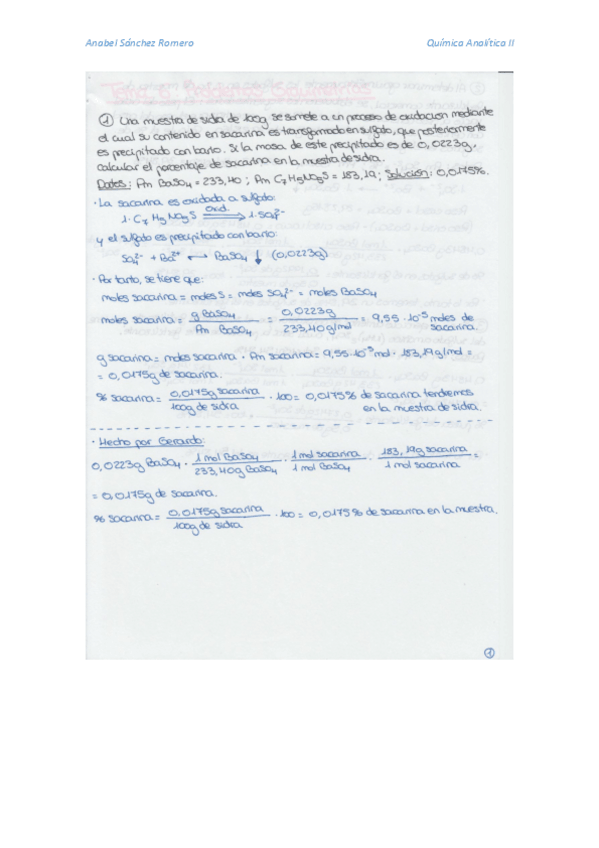 Anabel Sánchez Romero
Química Analítica II
① Una muestra de sidra de 100g se somete a un proceso de oxidación mediante
el cual su contenido en sacarina es transformado en sulfato, que posteriormente
es precipitado con bario. Si la masa de este precipitado es de 0,0223g.
calcular el porcentaje de sacarina en la muestra de sidra.
Datos: Pm BaSO₄ = 233,40 ; Pm C₇H₅NO₃S = 183,19 ; Solución: 0,0175%.
· La sacarina es oxidada a sulfato:
1·C₇H₅NO₃S Oxid. → 1·SO₄²⁻
y el sulfato es precipitado con bario:
SO₄²⁻ + Ba²⁺ ↔ BaSO₄ ↓ (0,0223g)
· Por tanto, se tiene que:
moles sacarina = moles S = moles SO₄²⁻ = moles BaSO₄
moles sacarina = g BaSO₄ / Pm BaSO₄ = 0,0223g / 233,40 g/mol = 9,55·10⁻⁵ moles de sacarina.
g sacarina = moles sacarina · Pm sacarina = 9,55·10⁻⁵ mol · 183,19 g/mol =
= 0,0175g de sacarina.
% sacarina = 0,0175g sacarina / 100g de sidra · 100 = 0,0175% de sacarina tendremos
en la muestra de sidra.
· Hecho por Gerardo:
0,0223g BaSO₄ · 1 mol BaSO₄ / 233,40g BaSO₄ · 1 mol sacarina / 1 mol BaSO₄ · 183,19g sacarina / 1 mol sacarina =
= 0,0175g de sacarina.
% sacarina = 0,0175g sacarina / 100g de sidra · 100 = 0,0175% de sacarina en la muestra.
①